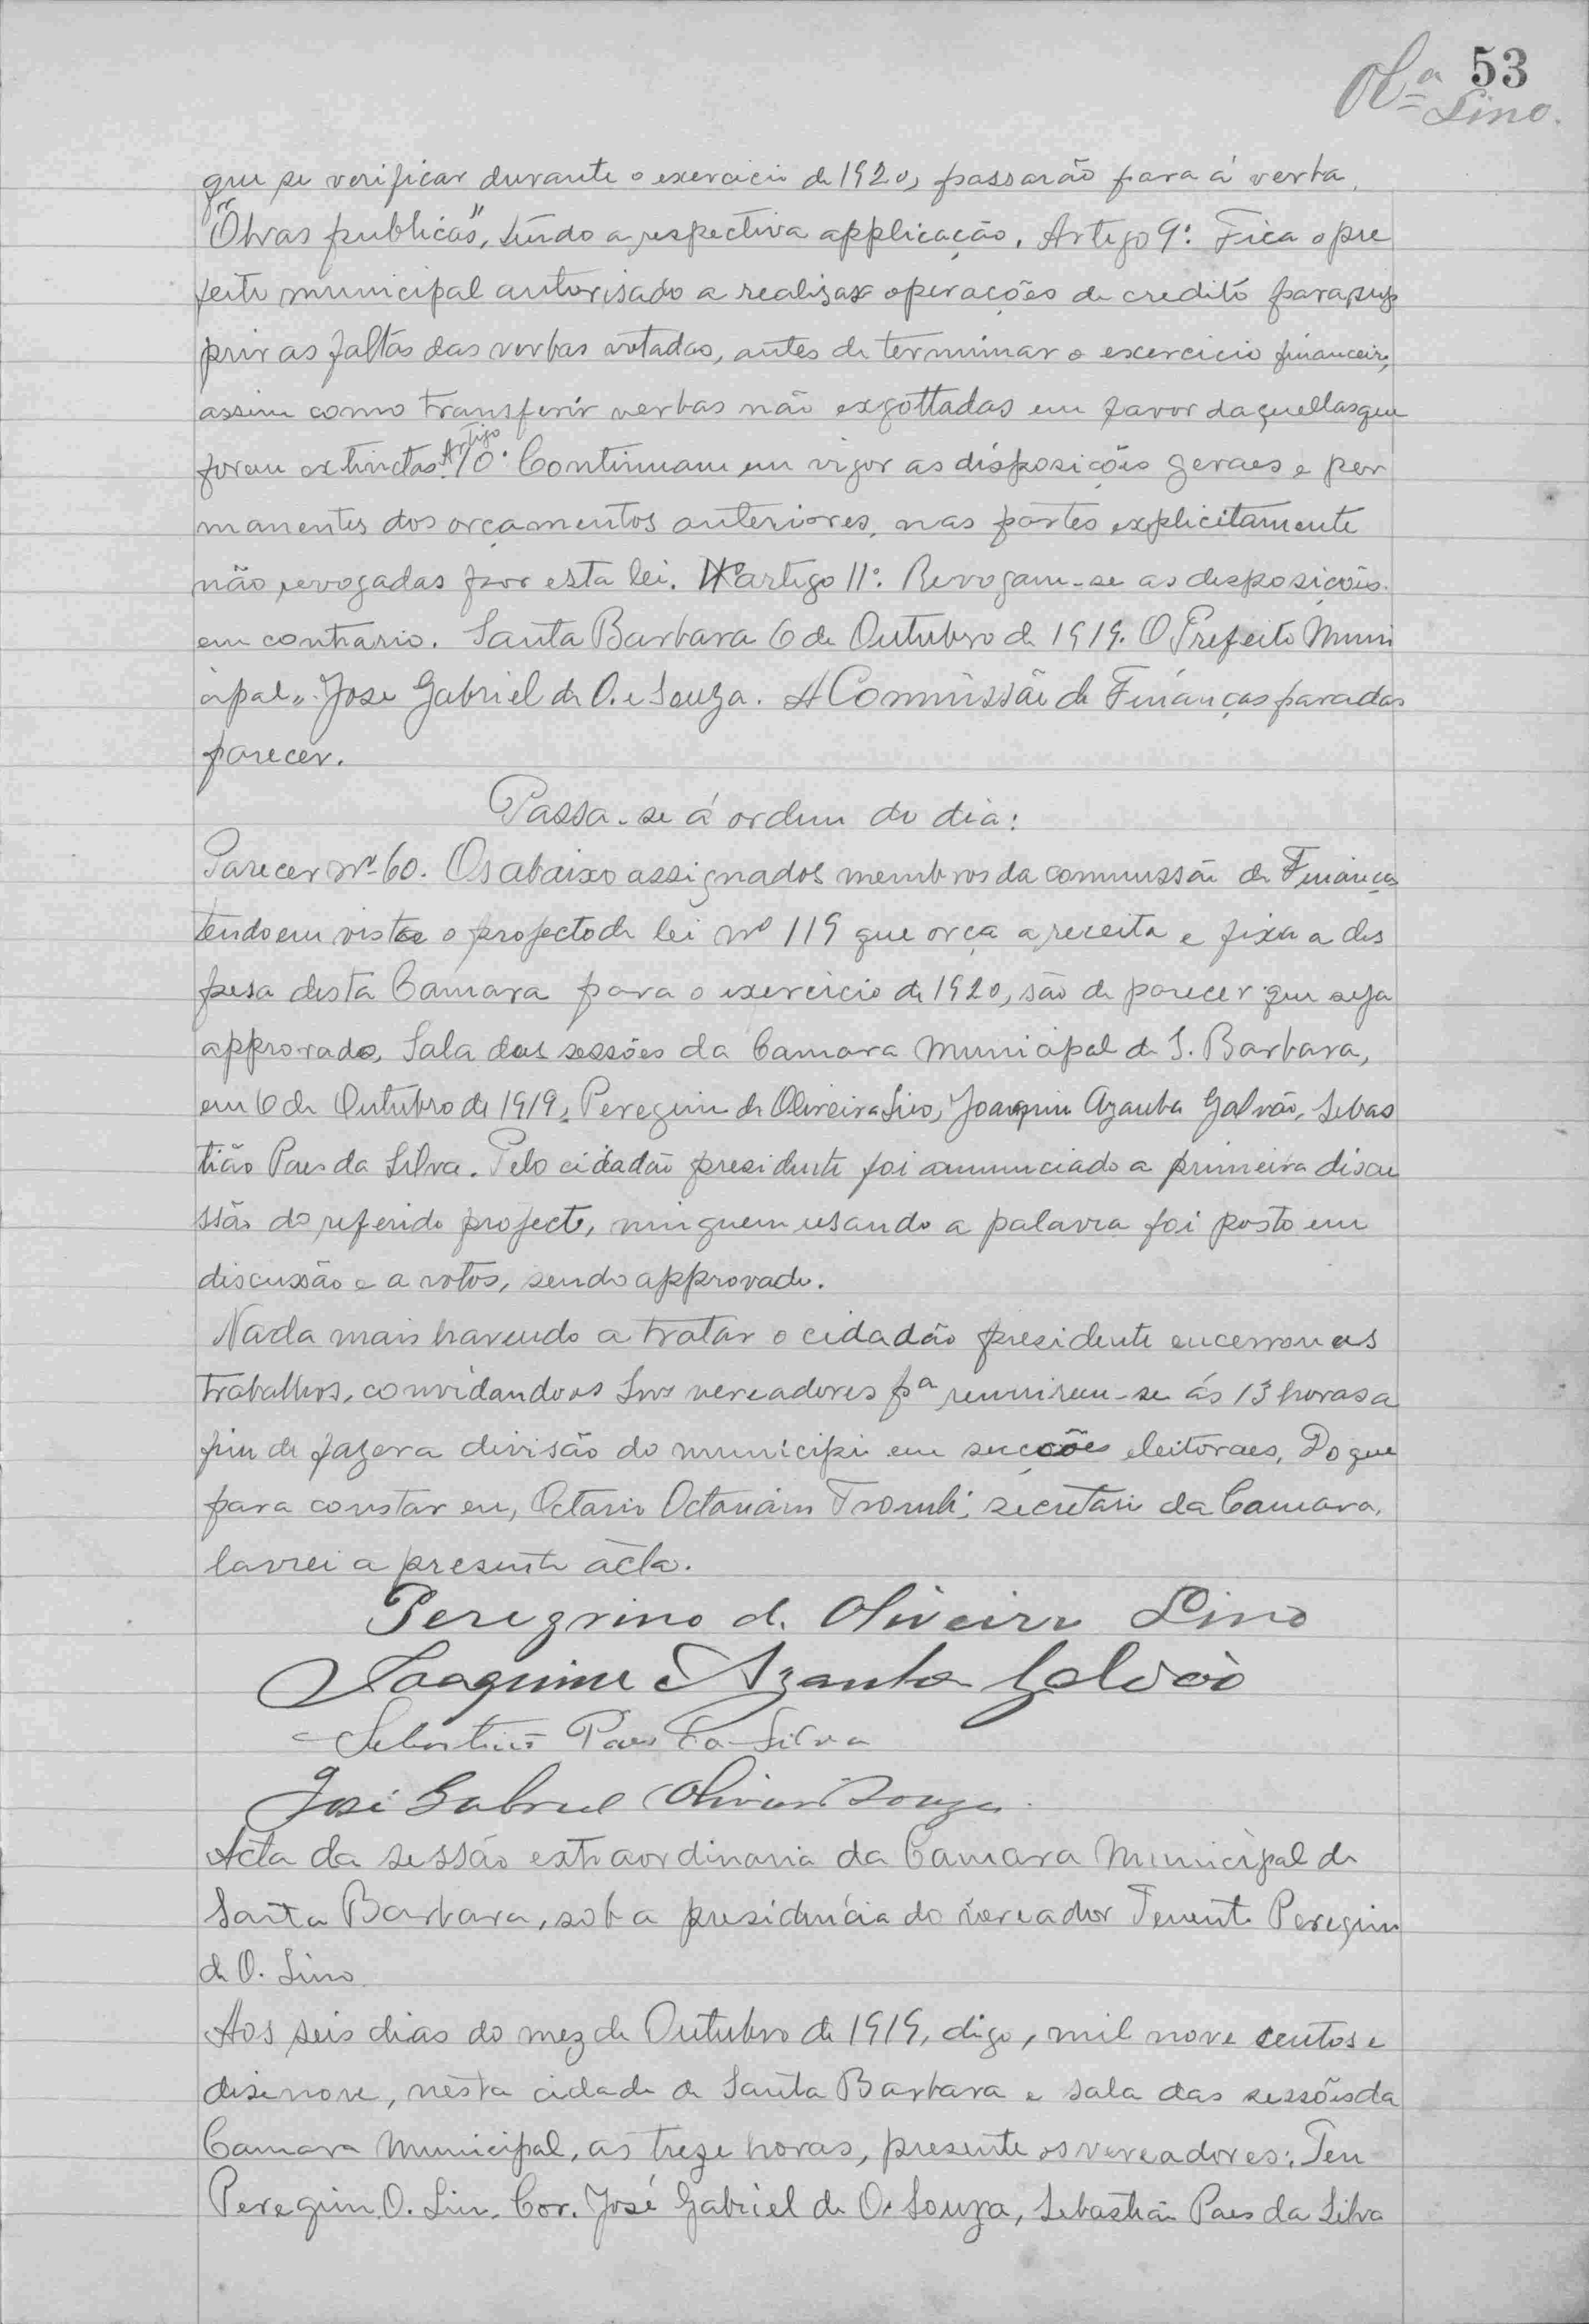 53
Olª Lino.
que se verificar durante o exercicio de 1920, passarão para á verba
"Obras publicas", tendo a respectiva applicação. Artigo 9º: Fica o pre
feito municipal autorisado a realisar operações de credito para sup
prir as faltas das verbas votadas, antes de terminar o exercicio financeiro,
assim como transferir verbas não exgottadas em favor daquellas que
forem extinctas. Artigo 10º Continuam em vigor as disposições geraes e per
manentes dos orçamentos anteriores, nas partes explicitamente
não revogadas por esta lei. artigo 11º. Revogam-se as disposições
em contrario. Santa Barbara 6 de Outubro de 1919. O Prefeito Muni
cipal,, José Gabriel de O. e Souza. A Commissão de Finanças para dar
parecer.
Passa-se á ordem do dia:
Parecer nº 60. Os abaixo assignados membros da commissão de Finanças
tendo em vista o projecto de lei nº 119 que orça a receita e fixa a des
pesa desta Camara para o exercicio de 1920, são de parecer que seja
approvado. Sala das sessões da Camara Municipal de S. Barbara,
em 6 de Outubro de 1919, Peregrino de Oliveira Lino, Joaquim Azanha Galvão, Sebas
tião Paes da Silva. Pelo cidadão presidente foi annunciado a primeira discu
ssão do referido projecto, ninguem usando a palavra foi posto em
discussão e a votos, sendo approvado.
Nada mais havendo a tratar o cidadão presidente encerrou os
trabalhos, convidando os Snrs vereadores pª reunirem-se ás 13 horas a
fim de fazer a divisão do municipio em secções eleitoraes. Do que
para constar eu, Octavio Octaviano secretario da Camara,
lavrei a presente acta.
Peregrino de Oliveira Lino
Joaquim Azanha Galvão
Sebastião Paes da Silva
José Gabriel Oliveira Souza
Acta da sessão extraordinaria da Camara Municipal de
Santa Barbara, sob a presidencia do vereador Tenente Peregrino
de O. Lino.
Aos seis dias do mez de Outubro de 1919, digo, mil nove centos e
disenove, nesta cidade de Santa Barbara e sala das sessões da
Camara Municipal, as treze horas, presente os vereadores: Ten
Peregrino O. Lino, Cor. José Gabriel de O. Souza, Sebastião Paes da Silva